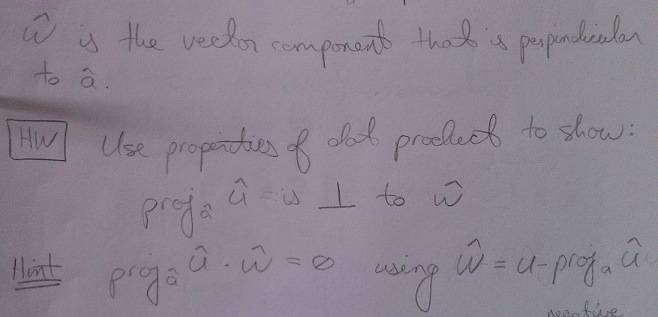 ŵ is the vector component that is perpendicular
to â.
HW Use properties of dot product to show:
proj_â û is ⊥ to ŵ
Hint proj_â û · ŵ = 0 using ŵ = u - proj_a û
negative